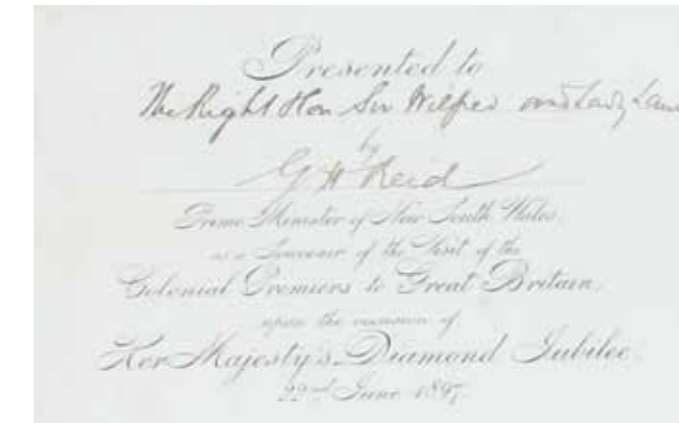 Presented to
The Right Hon Sir Wilfred and Lady
by
G H Reid
Prime Minister of New South Wales,
as a Souvenir of the Visit of the
Colonial Premiers to Great Britain,
upon the occasion of
Her Majesty's Diamond Jubilee.
22nd June 1897.